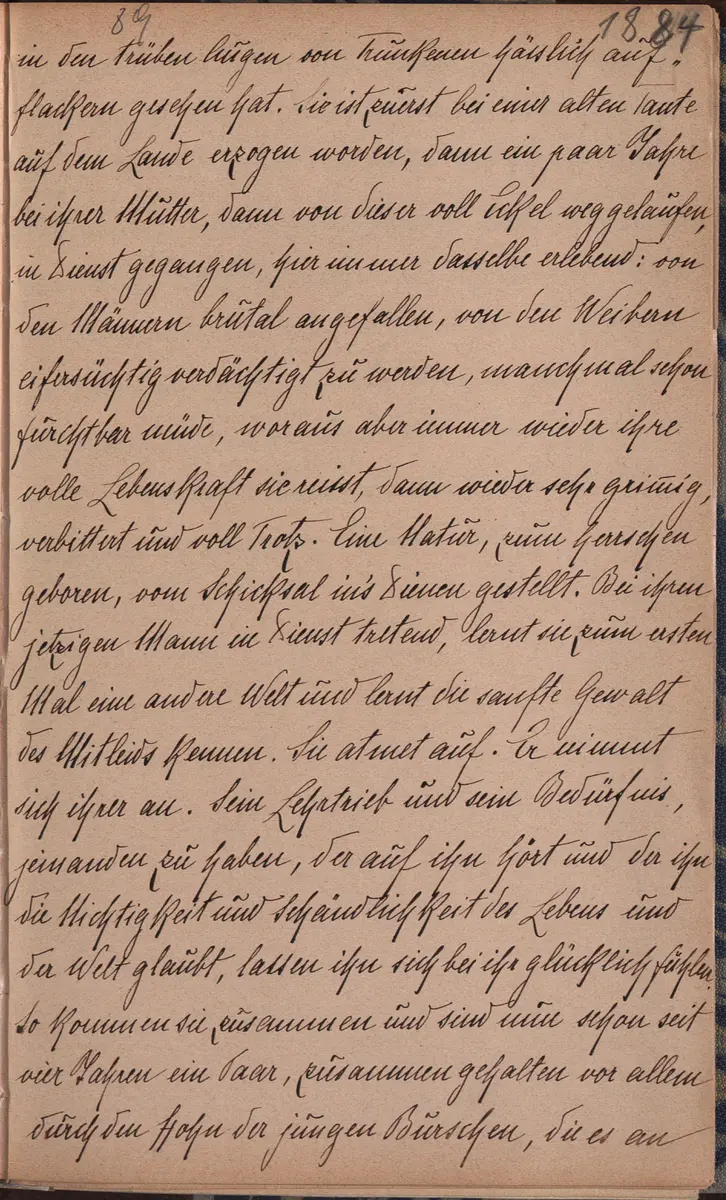 89 1884
in den trüben Augen von Trunkenen hässlich auf-
flackern gesehen hat. Sie ist zuerst bei einer alten Tante
auf dem Lande erzogen worden, dann ein paar Jahre
bei ihrer Mutter, dann von dieser voll Ekel weggelaufen,
in Dienst gegangen, hier immer dasselbe erlebend: von
den Männern brutal angefallen, von den Weibern
eifersüchtig verdächtigt zu werden, manchmal schon
furchtbar müde, woraus aber immer wieder ihre
volle Lebenskraft sie reisst, dann wieder sehr grimmig,
verbittert und voll Trotz. Eine Natur, zum herrschen
geboren, vom Schicksal in's Dienen gestellt. Bei ihren
jetzigen Mann in Dienst tretend, lernt sie zum ersten
Mal eine andere Welt und lernt die sanfte Gewalt
des Mitleids kennen. Sie atmet auf. Er nimmt
sich ihrer an. Sein Lehrtrieb und sein Bedürfnis,
jemanden zu haben, der auf ihn hört und der ihn
die Nichtigkeit und Schändlichkeit des Lebens und
der Welt glaubt, lassen ihn sich bei ihr glücklich fühlen.
So kommen sie zusammen und sind nun schon seit
vier Jahren ein Paar, zusammengehalten vor allem
durch den Hohn der jungen Burschen, die es an